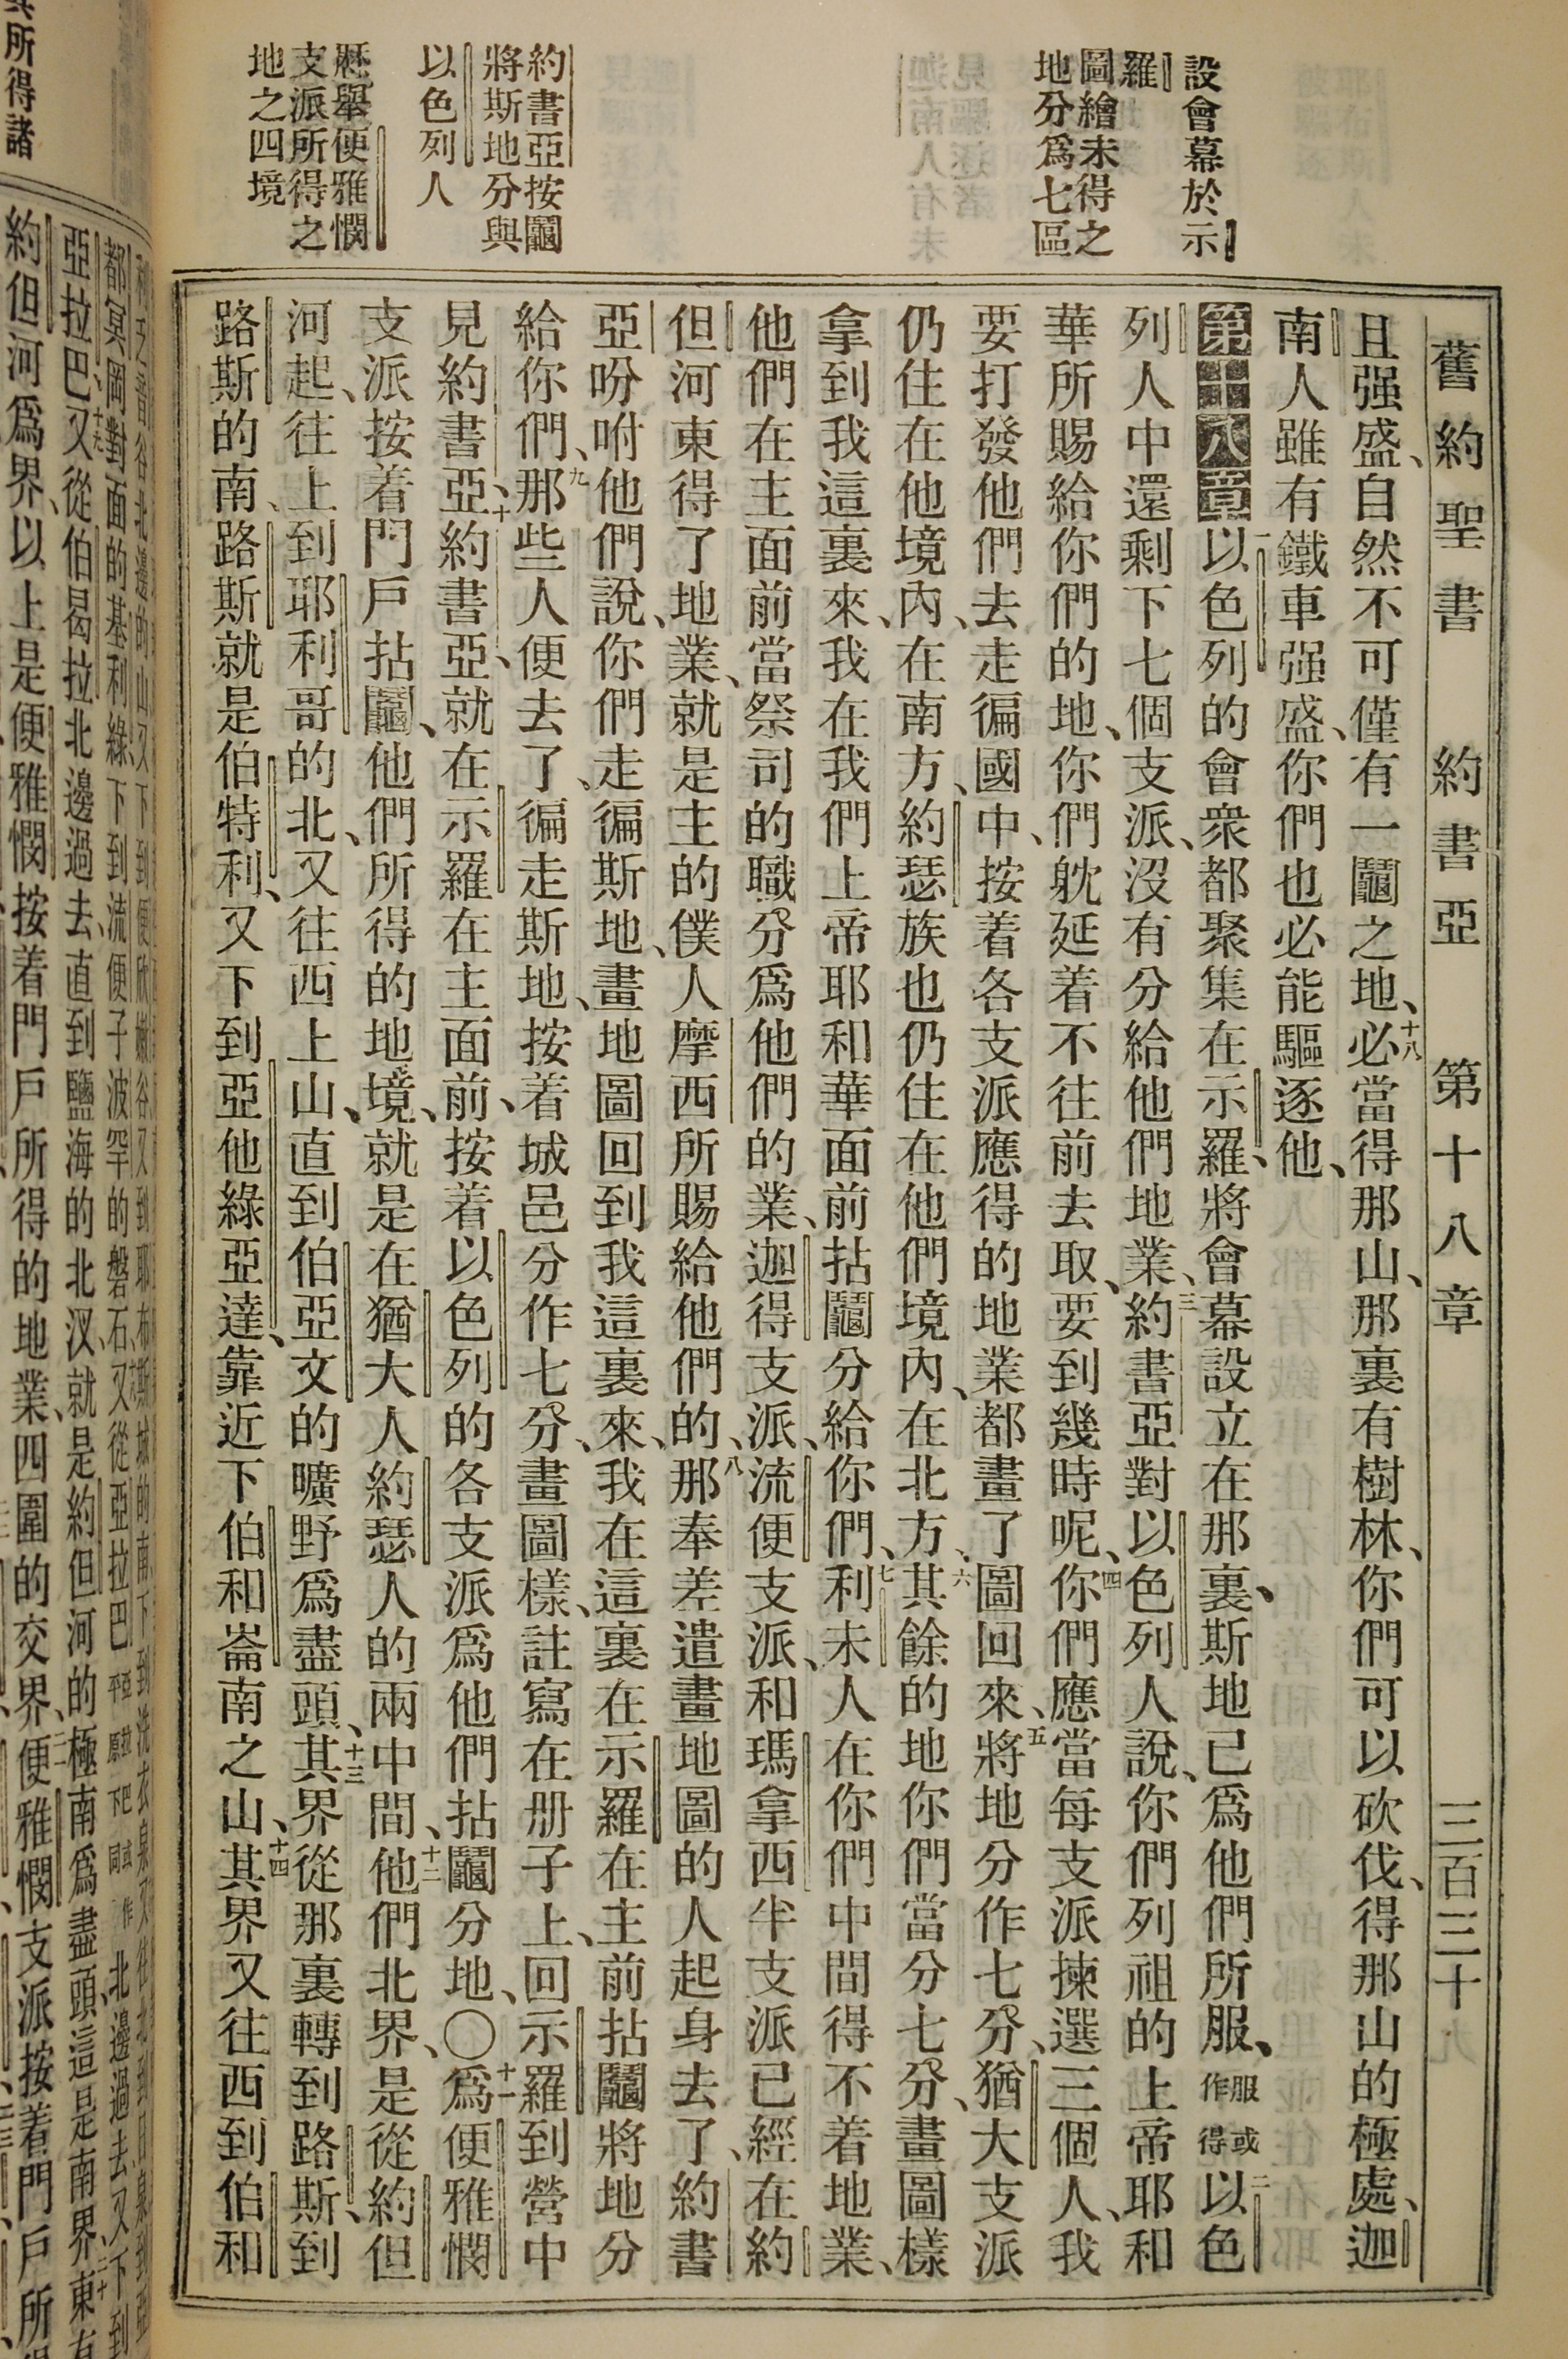 舊約聖書 約書亞 第十八章 三百三十九
設會幕於示
羅
圖繪未得之
地分爲七區
約書亞按鬮
將斯地分與
以色列人
歷舉便雅憫
支派所得之
地之四境
且强盛、自然不可僅有一鬮之地、十八必當得那山、那裏有樹林、你們可以砍伐、得那山的極處、迦
南人雖有鐵車强盛、你們也必能驅逐他、
第十八章 一以色列的會衆都聚集在示羅、將會幕設立在那裏、斯地已爲他們所服、服或作得二以色
列人中還剩下七個支派、沒有分給他們地業、三約書亞對以色列人說、你們列祖的上帝耶和
華所賜給你們的地、你們躭延着不往前去取、要到幾時呢、四你們應當每支派揀選三個人、我
要打發他們去走徧國中、按着各支派應得的地業都畫了圖回來、五將地分作七分、猶大支派
仍住在他境內、在南方、約瑟族也仍住在他們境內、在北方、六其餘的地你們當分七分、畫圖樣
拿到我這裏來、我在我們上帝耶和華面前拈鬮分給你們、七利未人在你們中間得不着地業、
他們在主面前當祭司的職分爲他們的業、迦得支派、流便支派、和瑪拿西半支派已經在約
但河東得了地業、就是主的僕人摩西所賜給他們的、八那奉差遣畫地圖的人起身去了、約書
亞吩咐他們說、你們走徧斯地、畫地圖回到我這裏來、我在這裏在示羅在主前拈鬮將地分
給你們、九那些人便去了、徧走斯地、按着城邑分作七分、畫圖樣、註寫在册子上、回示羅到營中
見約書亞、十約書亞、就在示羅在主面前、按着以色列的各支派爲他們拈鬮分地、○十一爲便雅憫
支派按着門戶拈鬮、他們所得的地境、就是在猶大人約瑟人的兩中間、十二他們北界、是從約但
河起、往上到耶利哥的北、又往西上山、直到伯亞文的曠野爲盡頭、十三其界從那裏轉到路斯、到
路斯的南、路斯就是伯特利、又下到亞他綠亞達、靠近下伯和崙南之山、十四其界又往西到伯和
亞拉巴、十九又從伯曷拉北邊過去、直到鹽海的北汊就是約但河的極南爲盡頭、這是南界、二十東有
約但河爲界、以上是便雅憫按着門戶所得的地業、四圍的交界、二一便雅憫支派按着門戶所
其所得諸